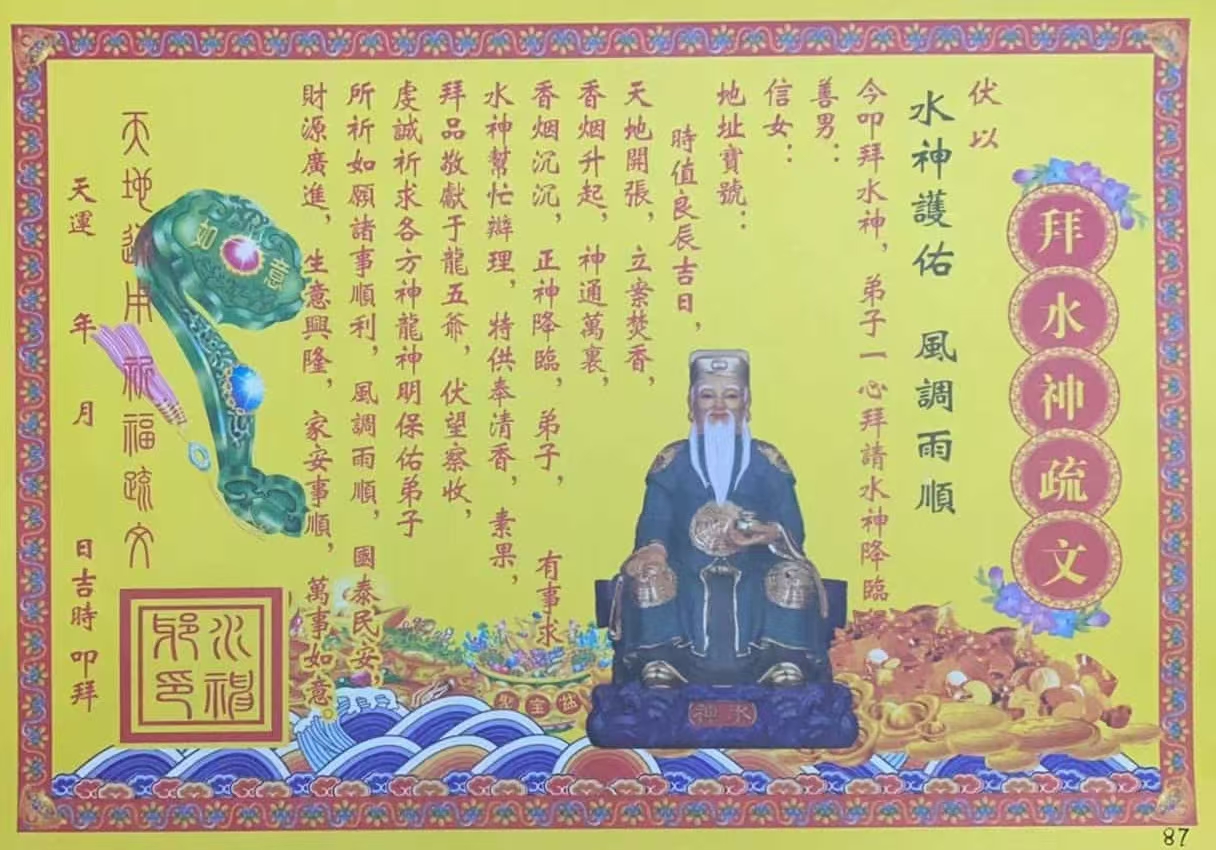 拜水神疏文
伏以
水神護佑 風調雨順
今叩拜水神，弟子一心拜請水神降臨
善男：
信女：
地址寶號：
時值良辰吉日，
天地開張，立案焚香，
香烟升起，神通萬裏，
香烟沉沉，正神降臨，弟子， 有事求
水神幫忙辦理，特供奉清香，素果，
拜品敬獻于龍五爺，伏望察收，
虔誠祈求各方神龍神明保佑弟子
所祈如願諸事順利，風調雨順，國泰民安，
財源廣進，生意興隆，家安事順，萬事如意。
如意
水神
天地通用祈福疏文
天運 年 月 日吉時 叩拜
87